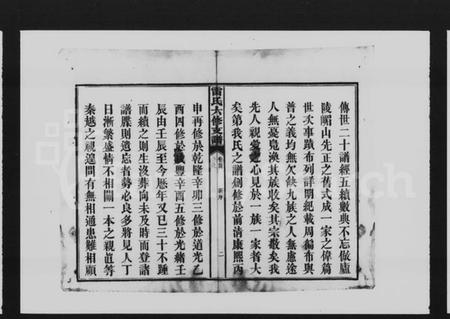 傳世二十譜經五續數典不忘倣廬
陵嵋山先正之舊式成一家之偉篇
世次事蹟布列詳明經載周編布與
普之義均無欠缺九族之人無慮途
人無憂寬漁其族敬矣其宗嚴矣我
先人親愛之心見於一族一家者大
矣第我氏之譜創修於前清康熙丙
雷氏六修支譜
卷首
新序
二
申再修於乾隆辛卯三修於道光乙
酉四修於咸豐辛酉五修於光緒壬
辰由壬辰至今厯年又已三十不踵
而續之則生沒葬向未及時而登諸
譜牒則遺忘者勢必良多將見人丁
日漸繁盛情不相關一本之視直等
秦越之視遑問有無相通患難相顧